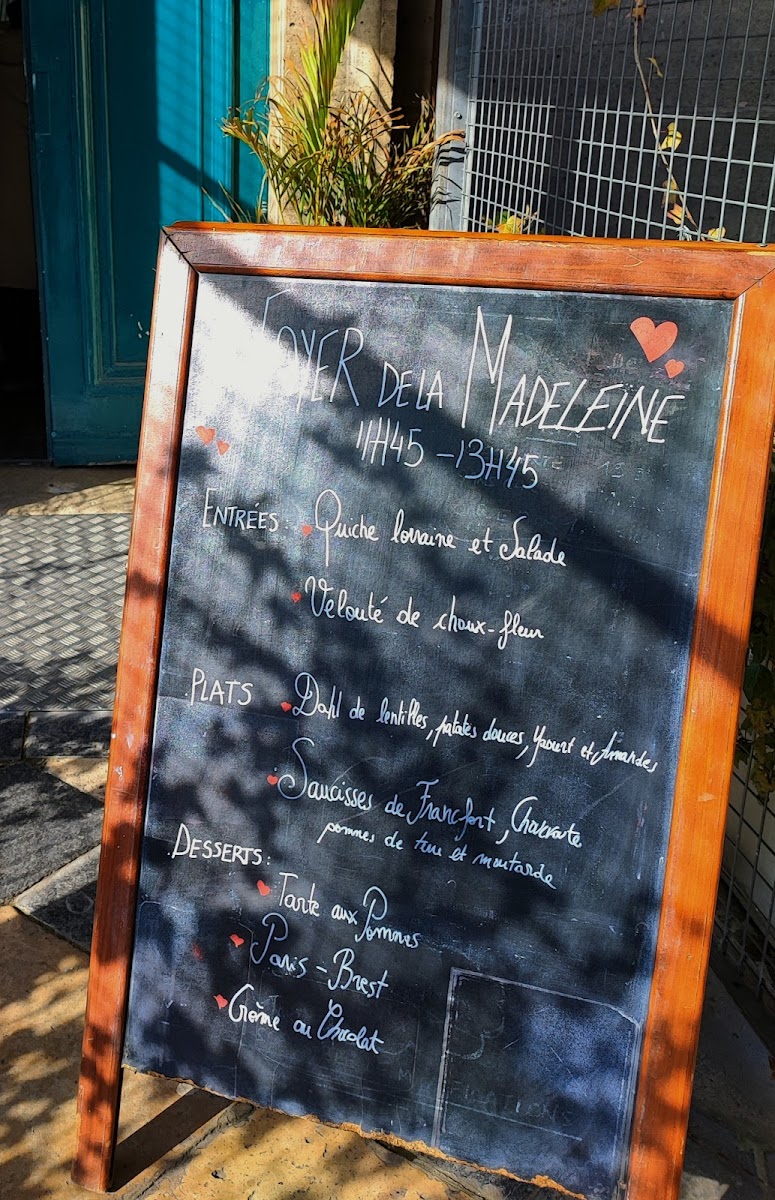 FOYER DE LA MADELEINE
11H45 - 13H45
ENTRÉES : Quiche lorraine et Salade
Velouté de choux-fleur
PLATS Dahl de lentilles, patates douces, Yaourt et Amandes
Saucisses de Francfort, Choucroute
pommes de terre et moutarde
DESSERTS :
Tarte aux Pommes
Paris-Brest
Crème au Chocolat